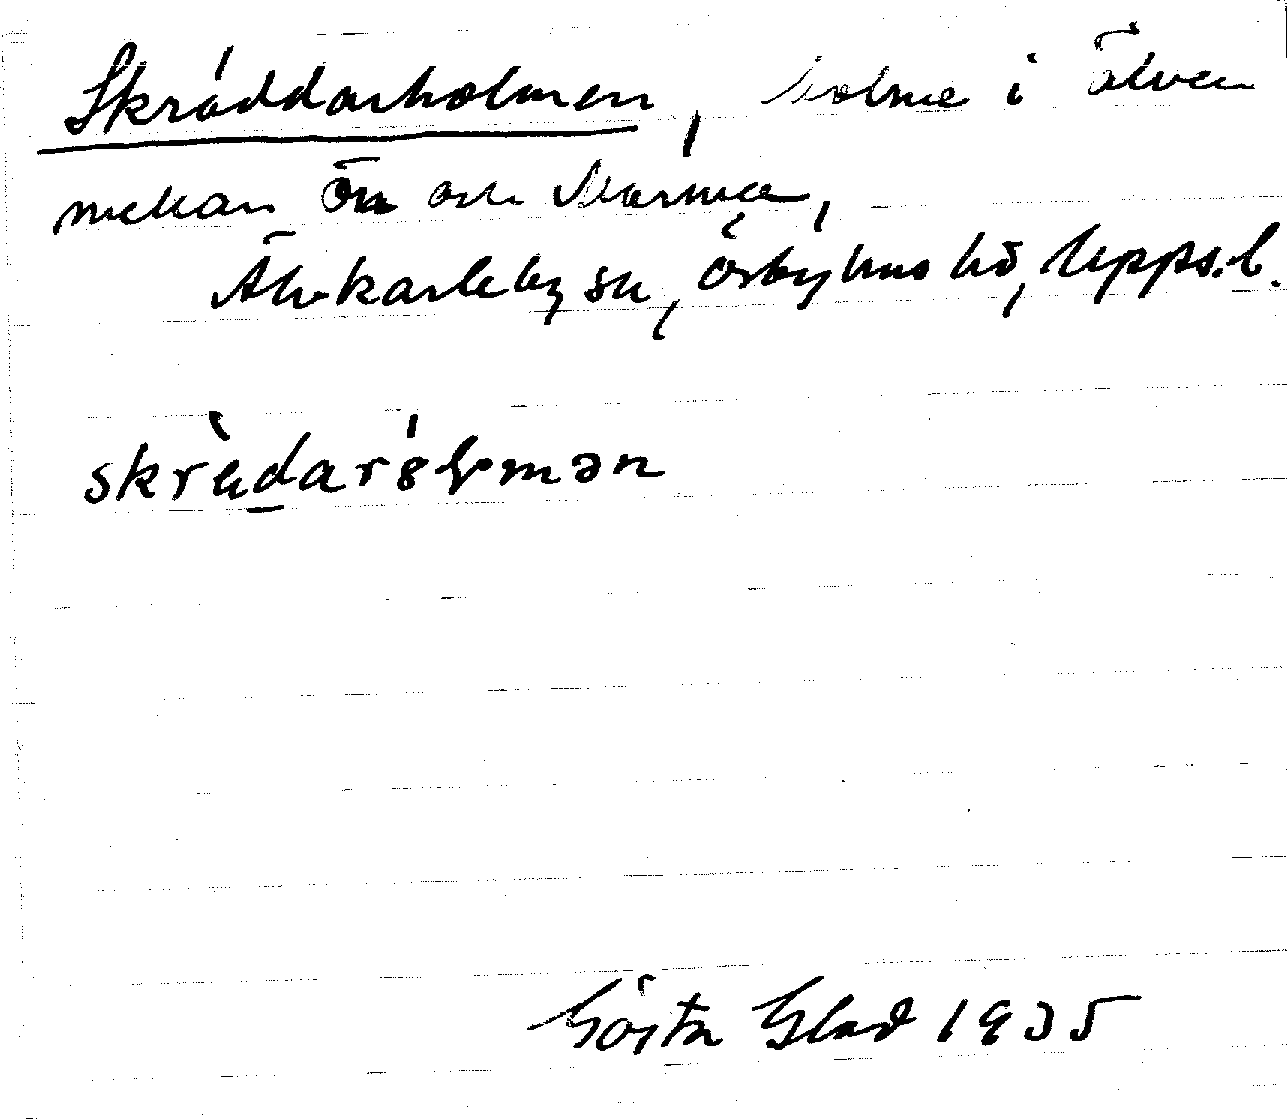 Skräddarholmen, holme i älven
mellan Ön och Marma,
Älvkarleby sn, Örbyhus hd, Upps. l.
skrὰdarólmən
Gösta Glad 1935